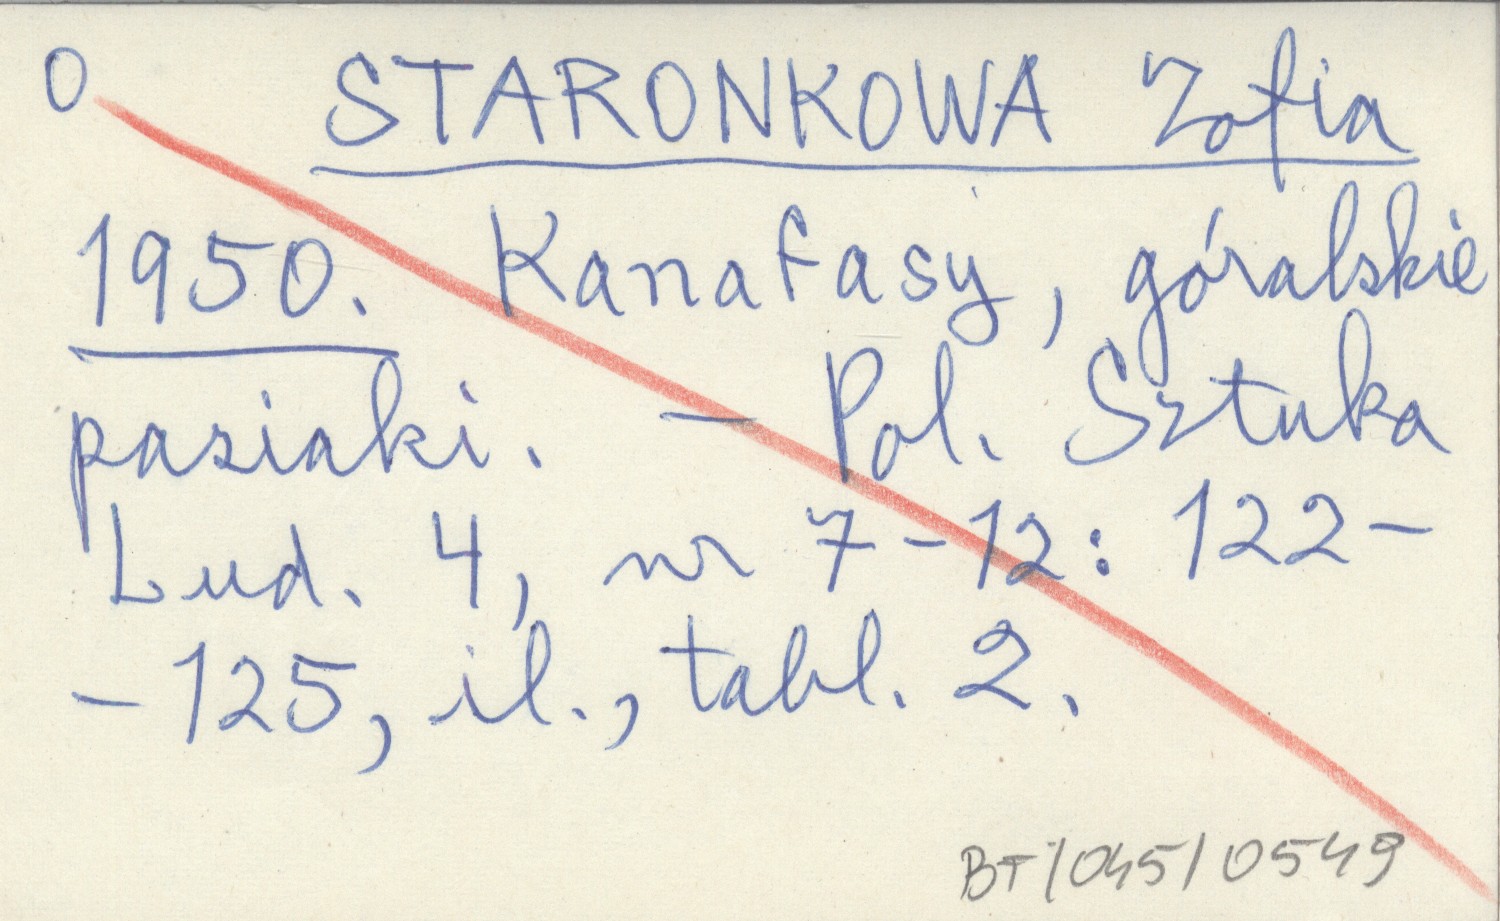 0 STARONKOWA Zofia
1950. Kanafasy, góralskie
pasiaki. – Pol. Sztuka
Lud. 4, nr 7-12: 122-
-125, il., tabl. 2.
BT/045/0549